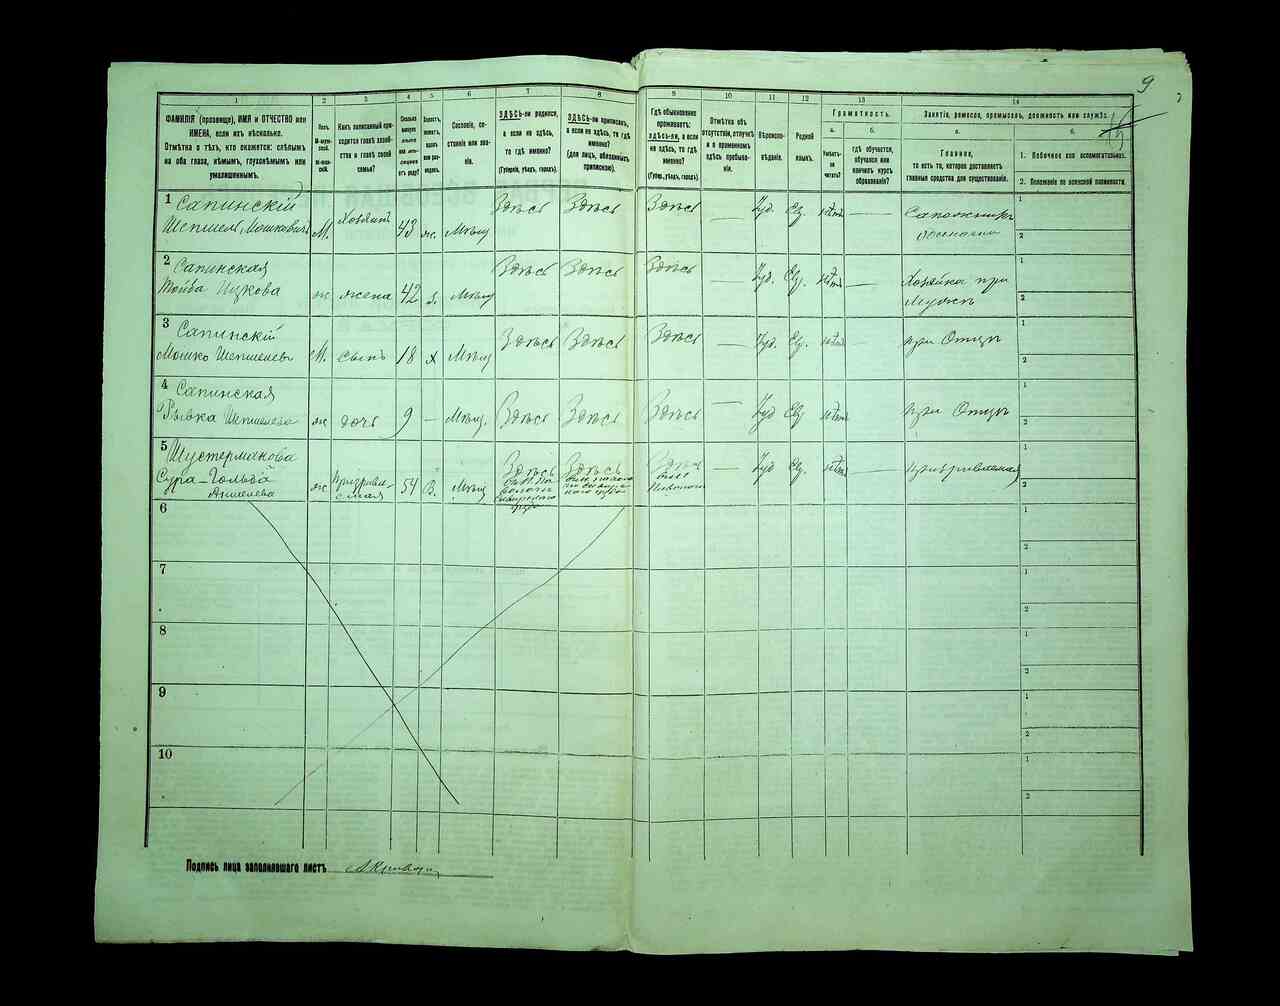 9
1 2 3 4 5 6 7 8 9 10 11 12 13 14
ФАМИЛІЯ (прозвище), ИМЯ и ОТЧЕСТВО или
ИМЕНА, если ихъ нѣсколько.
Отмѣтка о тѣхъ, кто окажется: слѣпымъ
на оба глаза, нѣмымъ, глухонѣмымъ или
умалишеннымъ.
Полъ.
М-муж-
ской.
Ж-жен-
скій.
Какъ записанный при-
ходится главѣ хозяй-
ства и главѣ своей
семьи?
Сословіе, со-
стояніе или зва-
ніе.
ЗДѢСЬ-ли родился,
а если не здѣсь,
то гдѣ именно?
(Губернія, уѣздъ, городъ).
ЗДѢСЬ-ли приписанъ,
а если не здѣсь, то гдѣ
именно?
(для лицъ, обязанныхъ
припискою).
Гдѣ обыкновенно
проживаетъ:
здѣсь-ли, а если
не здѣсь, то гдѣ
именно?
(Губерн., уѣздъ, городъ).
Отмѣтка объ
отсутствіи, отлучкѣ
и о временномъ
здѣсь пребыва-
ніи.
Вѣроиспо-
вѣданіе.
Родной
языкъ.
Грамотность.
а. б.
Умѣетъ-
ли
читать?
гдѣ обучается,
обучался или
кончилъ курсъ
образованія?
Занятія, ремесло, промыселъ, должность или служба.
а. б.
Главное,
то есть то, которое доставляетъ
главныя средства для существованія.
1. Побочное или вспомогательное.
2. Положеніе по воинской повинности.
1 Сапинскій
Шепшель Мошковичъ М. Хозяинъ 43 ж. Мѣщ Здѣсь Здѣсь Здѣсь — Іуд. Евр. нѣтъ — Сапожникъ
1
2
2 Сапинская
Тойба Ицкова ж жена 42 з. Мѣщ Здѣсь Здѣсь Здѣсь — Іуд. Евр. нѣтъ — Хозяйка при
Мужѣ
1
2
3 Сапинскій
Мошко Шепшелевъ М. сынъ 18 х Мѣщ Здѣсь Здѣсь Здѣсь — Іуд. Евр. нѣтъ — при Отцѣ
1
2
4 Сапинская
Рывка Шепшелева ж дочь 9 — Мѣщ. Здѣсь Здѣсь Здѣсь — Іуд Евр нѣтъ при Отцѣ
1
2
5 Шустерманова
Сура-Гольда
Аншелева ж 54 В. Мѣщ Здѣсь Здѣсь Здѣсь — Іуд Евр. нѣтъ —
1
2
6 1
2
7 1
2
8 1
2
9 1
2
10 1
2
Подпись лица заполнявшаго листъ